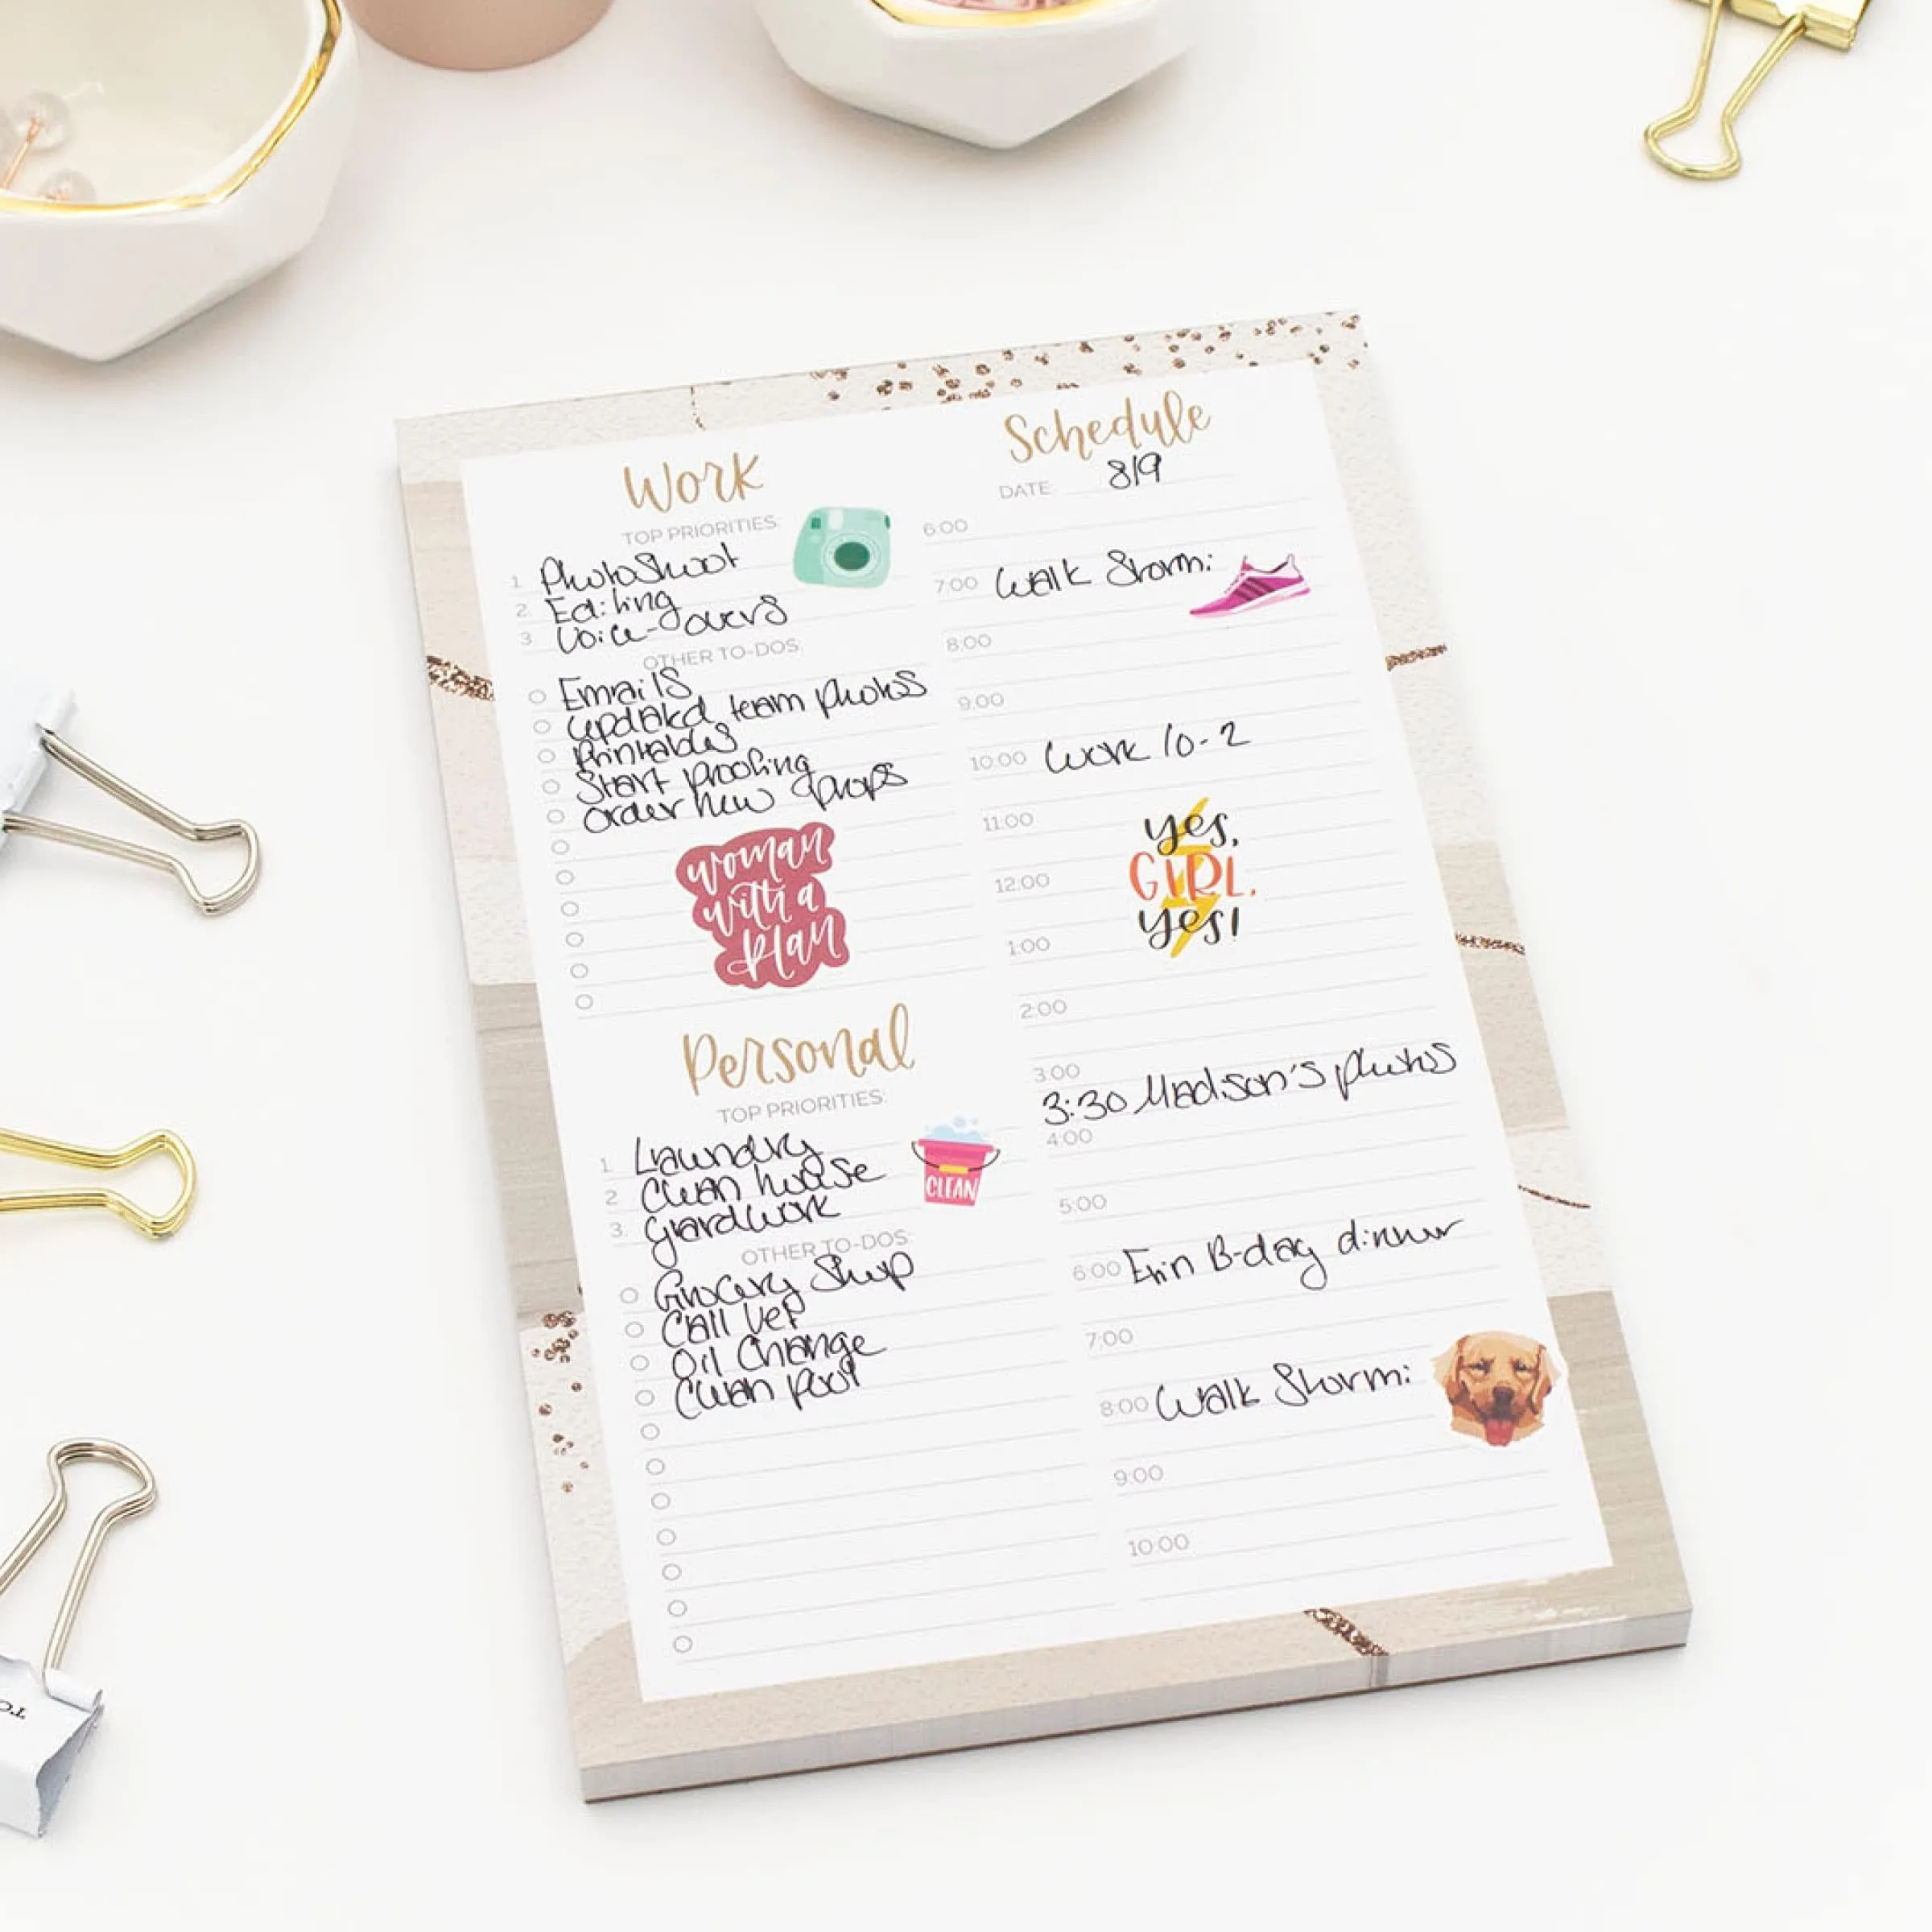 Work
TOP PRIORITIES:
1. Photoshoot
2. Editing
3. Voice-overs
OTHER TO-DOS:
Emails
updated team photos
Printables
Start proofing
order new props
woman
with a
plan
Personal
TOP PRIORITIES:
1. Laundry
2. Clean house
3. yardwork
CLEAN
OTHER TO-DOS:
Grocery Shop
Call Vet
Oil Change
Clean pool
Schedule
DATE: 8/9
6:00
7:00 Walk Stormi
8:00
9:00
10:00 Work 10-2
11:00
yes,
GIRL,
yes!
12:00
1:00
2:00
3:00
3:30 Madison's photos
4:00
5:00
6:00 Erin B-day dinner
7:00
8:00 Walk Stormi
9:00
10:00